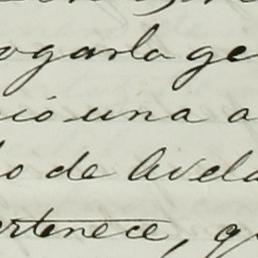 ogarla ge
ió una a
o de Avela
ertenece, q